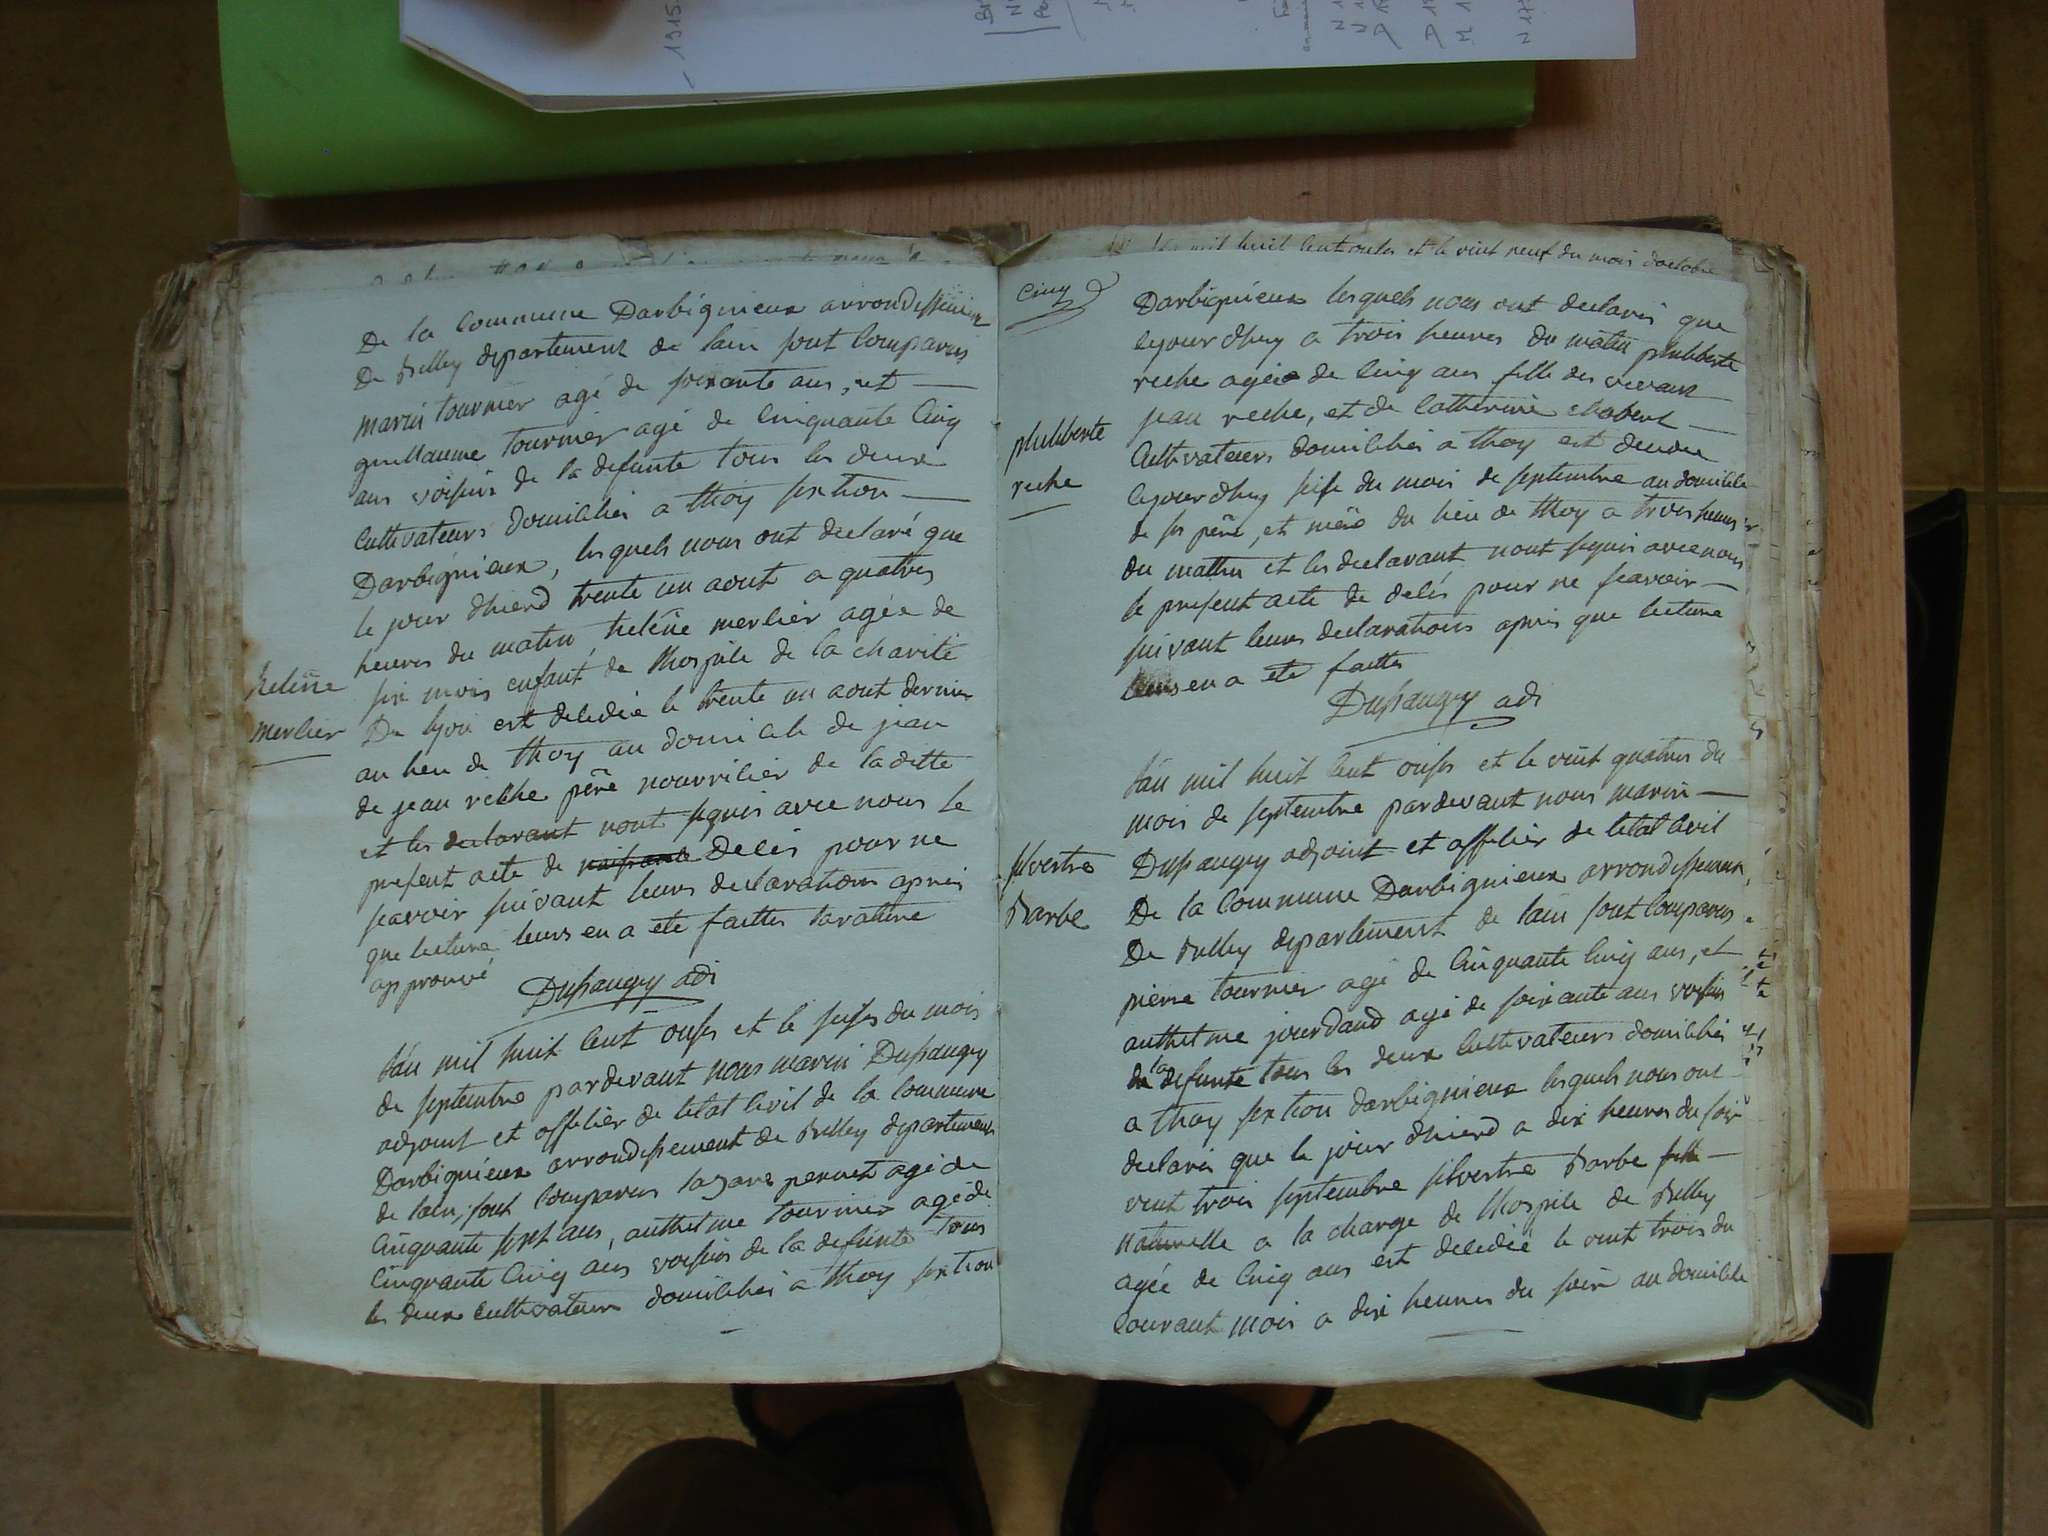 De la Commune Darbignieux arrondissement
De Belley departement de lain sont Comparus
marin tournier agé de soixante ans, et
guillaume tournier agé de Cinquante Cinq
ans voisins de la defunte tous les deux
Cultivateurs domiciliés a thoy section
Darbignieux, lesquels nous ont declaré que
le jour dhierd trente un aout a quatres
heures du matin, heléne merlier agée de
six mois enfant de lhospice de la charité
De lyon est decedée le trente un aout dernier
au lieu de thoy au domicile de jean
de jean reche pere nourricier de la ditte
et les declarant nont signés avec nous le
present acte de Decés pour ne
scavoir suivant leurs declarations aprés
que lecture leurs en a ete faittes larature
approuvé
heléne
merlier
Dupaugey adj
lán mil huit Cent onses et le seises du mois
de septembre pardevant nous marin Dupaugey
adjoint et officier de letat Civil de la Commune
Darbignieux arrondissement de Belley departement
de lain, sont Comparus lazare pernet agé de
Cinquante sept ans, anthelme tournier agé de
Cinquante Cinq ans voisins de la defunte tous
les deux cultivateurs domiciliés a thoy section
lan mil huit Cent onses et le vint neuf du mois doctobre
Cinq
Darbignieux lesquels nous ont declarés que
lejourdhuy a trois heures du matin philiberte
reche agée de Cinq ans fille des vivants
jean reche, et de Catherine chabert
Cultivateurs domiciliés a thoy est decedee
lejourdhuy seise du mois de septembre au domicile
de ses pére, et mére du lieu de thoy a trois heures
du mattin et les declarant nont signés avec nous
le present acte de decés pour ne scavoir
suivant leurs declarations aprés que lecture
leurs en a ete faittes
philiberte
reche
Dupaugey adj
lán mil huit Cent onses et le vint quatres du
mois de septembre pardevant nous marin
Dupaugey adjoint et officier de letat Civil
De la Commune Darbignieux arrondissement
De Belley departement de lain sont Comparus
pierre tournier agé de Cinquante Cinq ans, et
anthelme jourdand agé de soixante ans voisins
de la defunte tous les deux Cultivateurs domiciliés
a thoy section darbignieux lesquels nous ont
declarés que le jour dhierd a dix heures du soir
vint trois septembre silvestre Barbe fille
naturelle a la charge de lhospice de Belley
agée de Cinq ans est decedée le vint trois du
Courant mois a dix heures du soir au domicile
silvestre
Barbe